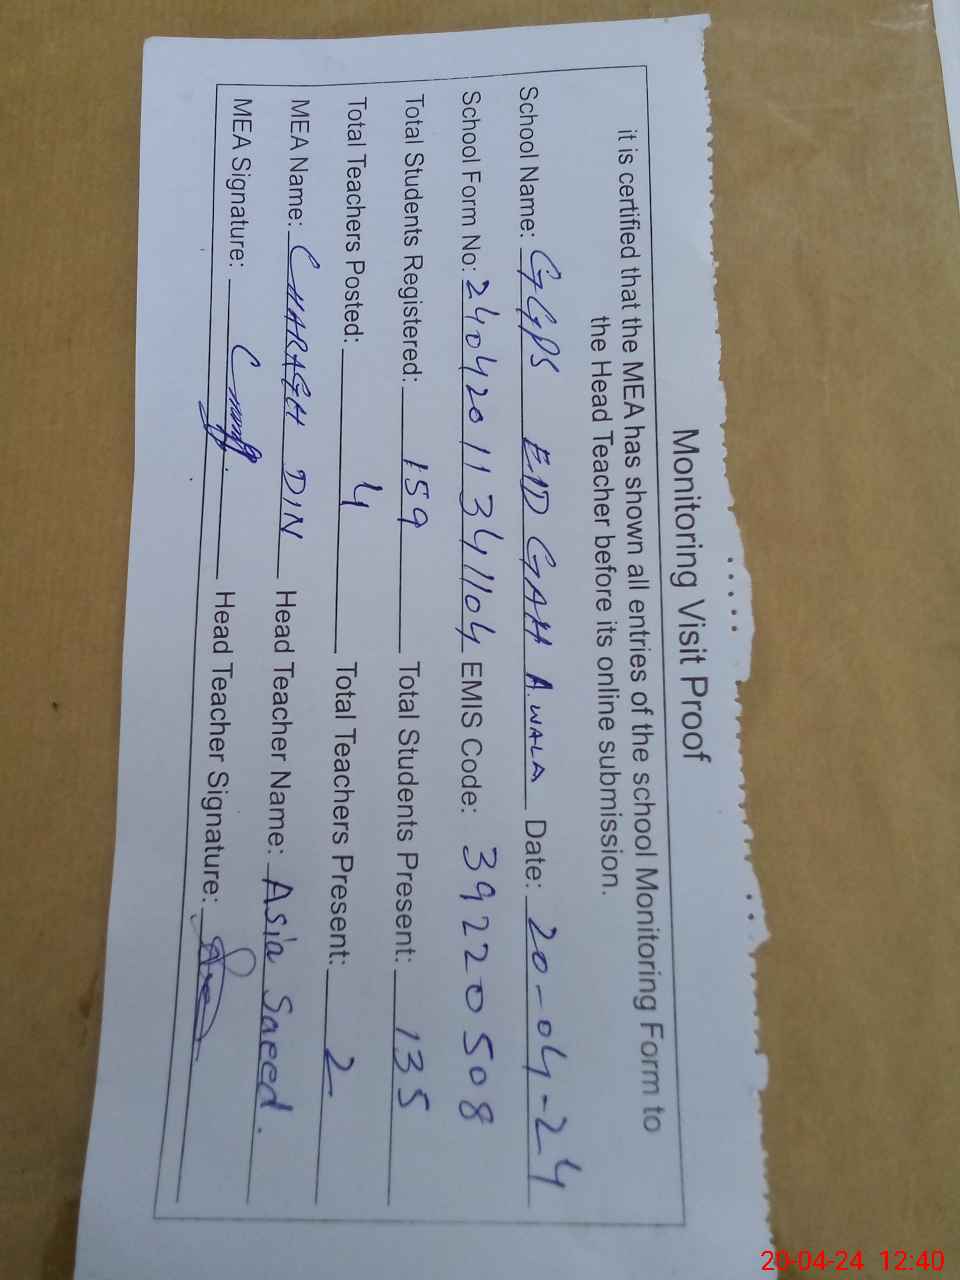 Monitoring Visit Proof
it is certified that the MEA has shown all entries of the school Monitoring Form to
the Head Teacher before its online submission.
School Name: GGPS EID GAH A.WALA Date: 20-04-24
School Form No: 24042011341104 EMIS Code: 39220508
Total Students Registered: 159 Total Students Present: 135
Total Teachers Posted: 4 Total Teachers Present: 2
MEA Name: CHARAGH DIN Head Teacher Name: Asia Saeed.
MEA Signature: Head Teacher Signature:
20-04-24 12:40